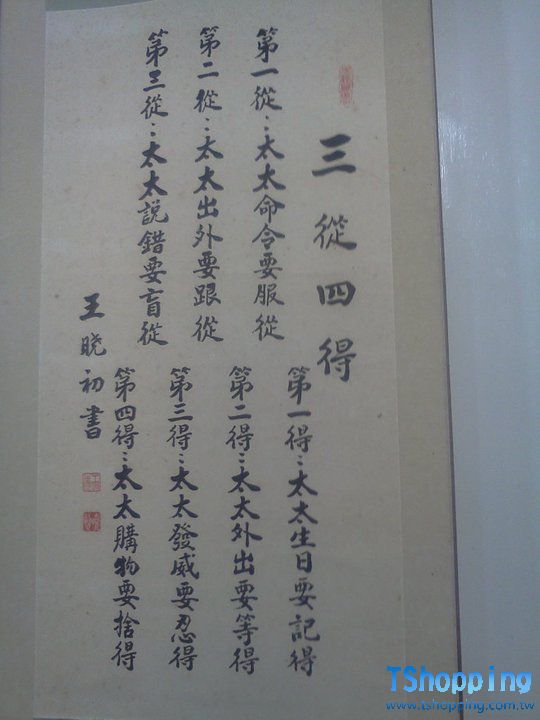 三從四得
第一從：太太命令要服從
第二從：太太出外要跟從
第三從：太太說錯要盲從
第一得：太太生日要記得
第二得：太太外出要等得
第三得：太太發威要忍得
第四得：太太購物要捨得
王晓初書
TShopping
www.tshopping.com.tw